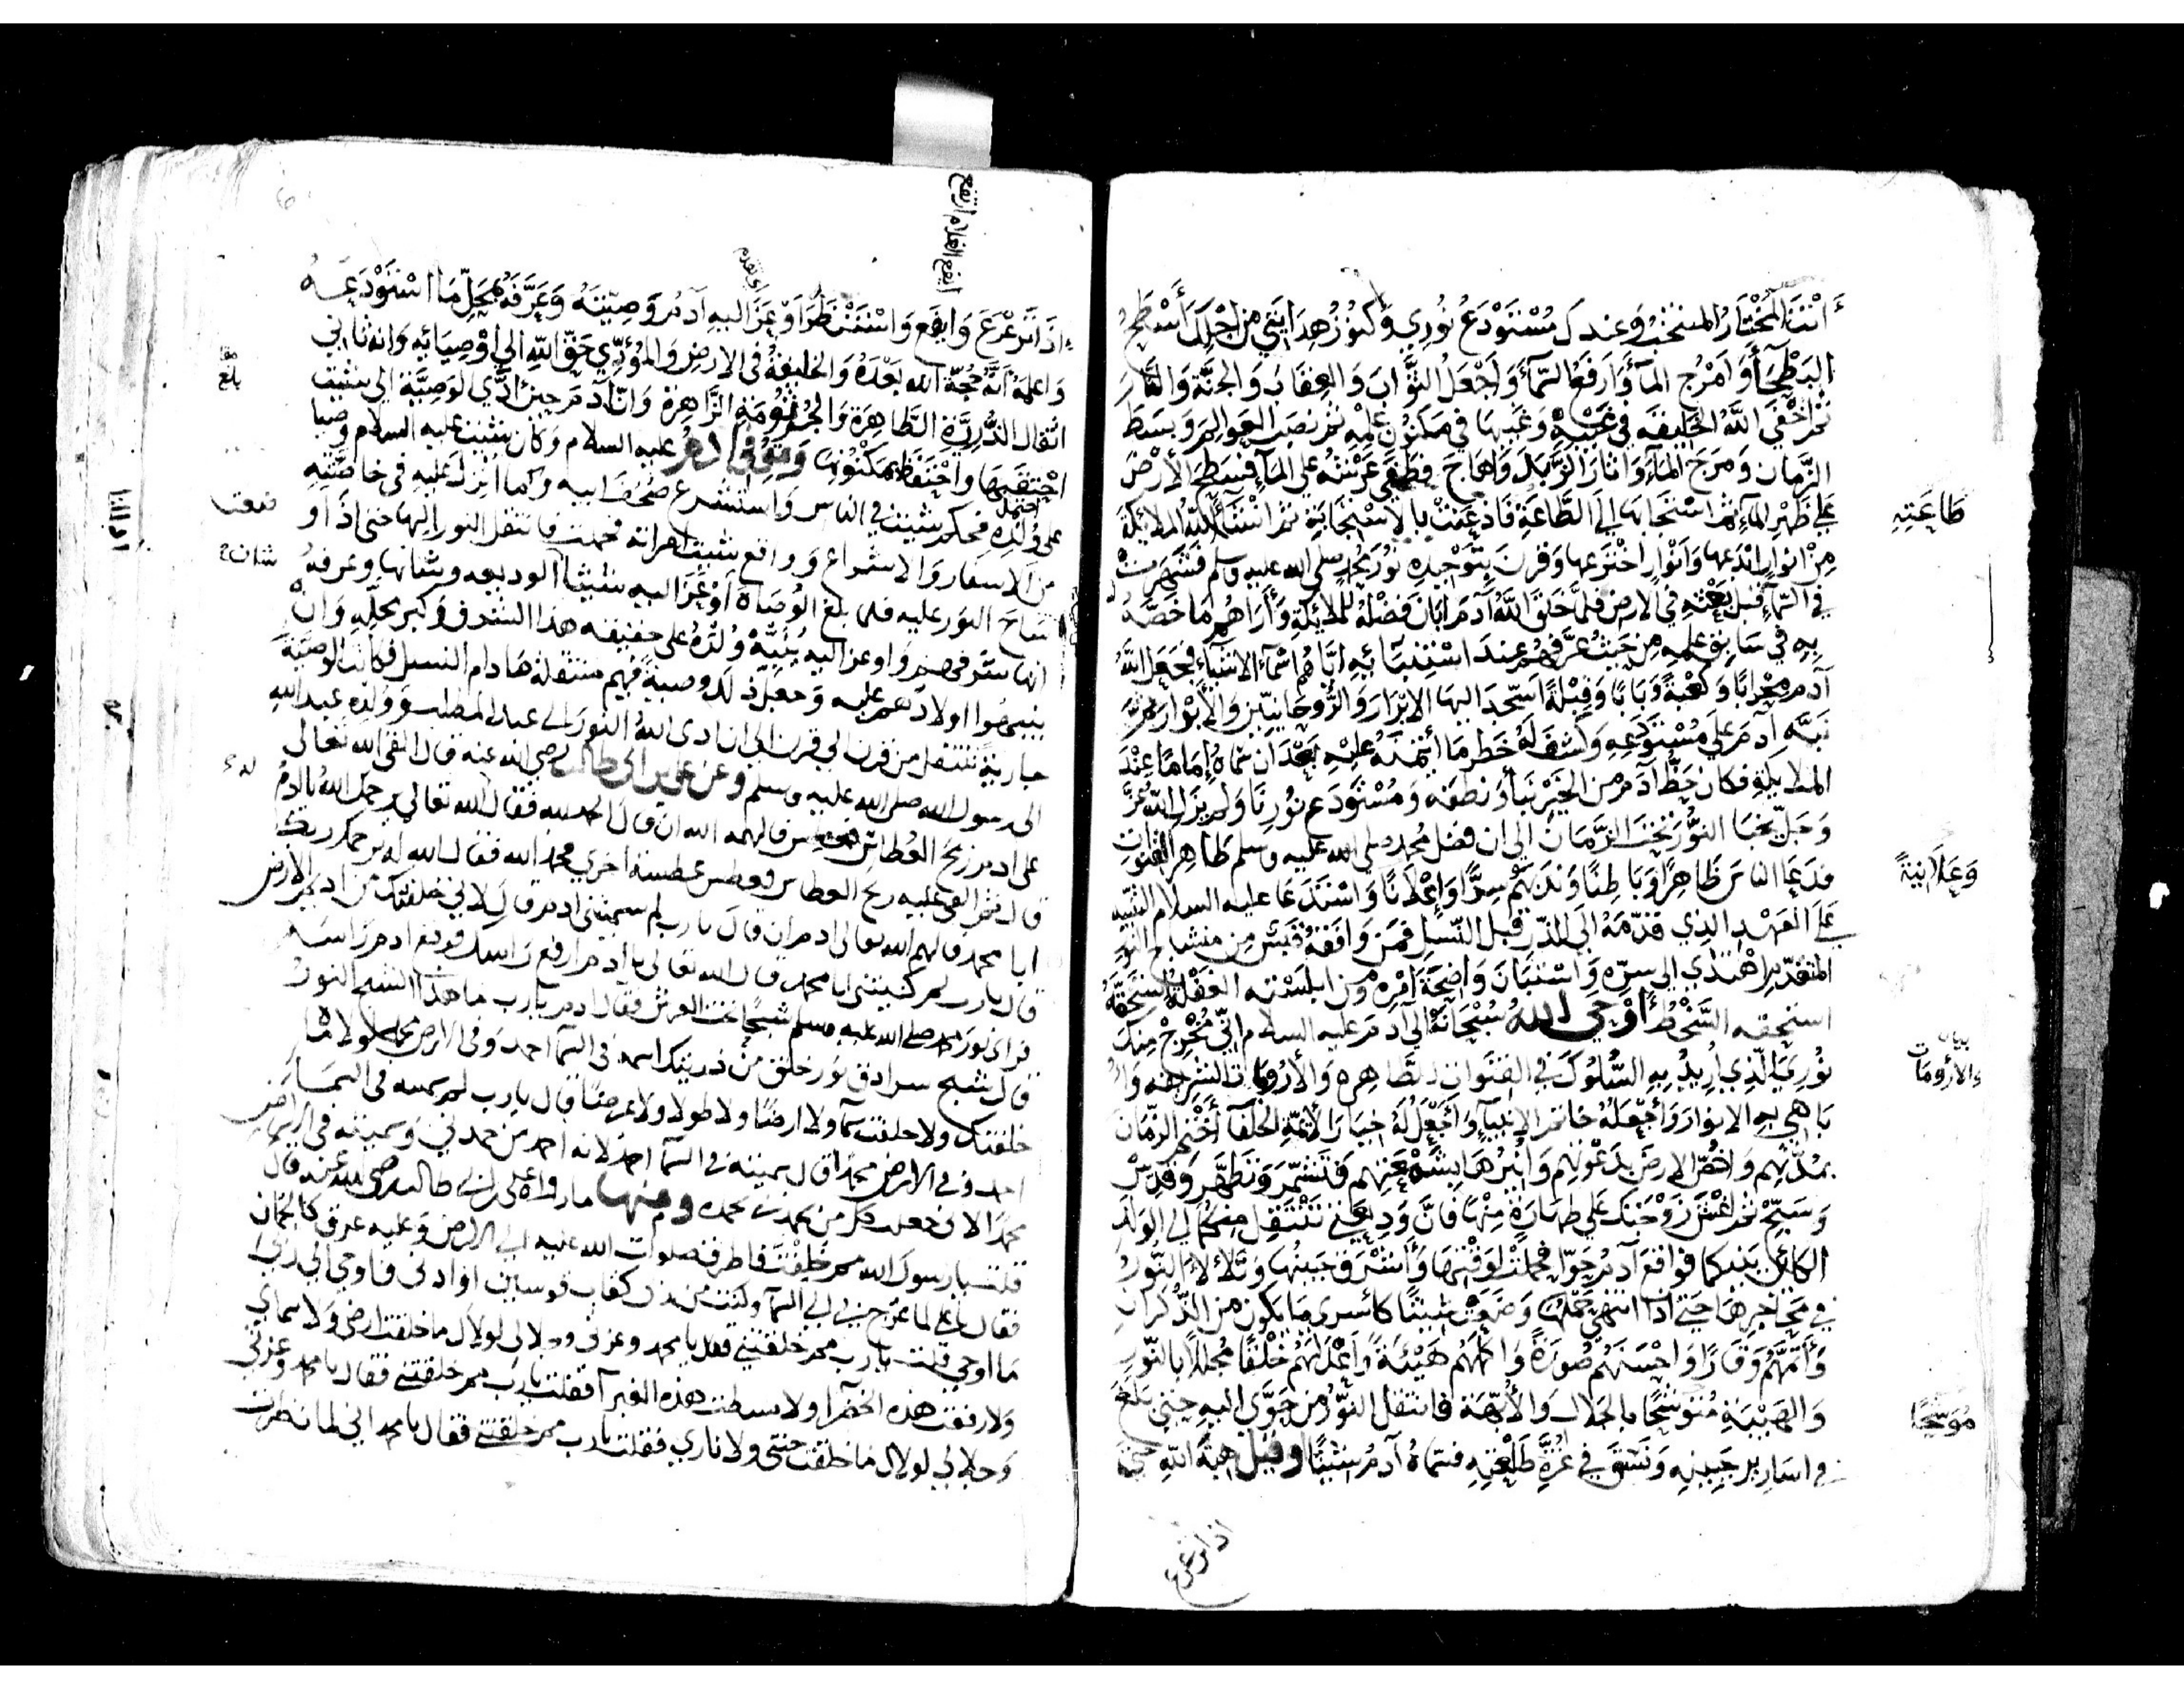 أَنْتَ المُخْتَارُ المنتخب وَعندك مُسْتَوْدَعُ نُورِي وَكنُوزُ هِدَايَتِي مِن اجْلِكَ أَسْطَحُ
البَطْحَآءُ وَامْرُج المآءَ وَارْفَعُ السَّمآءَ وَاجْعَلُ الثَّوَابَ وَالعِقَابَ وَالجَنَّةَ وَالنَّارَ
ثُمَّ اَخْفَى اللَّهُ الخَلِيقَةَ فى غَيْبِهِ وَغَيَّبَهَا فى مَكْنُونِ عِلْمِهِ ثمَّ نصَبَ العَوالِمَ وَبسَطَ
الزَّمَان وَمَرَجَ المآءَ وَاثارَ الزَّبَدَ وَاهَاجَ فَطَفَى عَرْشُهُ عَلَى المآءِ فَسَطَحَ الأَرْضَ
عَلَى ظَهْرِ المآءِ ثمَّ اسْتَجَابَهَا إلى الطَّاعَةِ فَاذعَنَتْ بِالاسْتِجَابَةِ ثمَّ انْشَأَ اللهُ الملائكةَ
طَاعَتِهِ
مِنْ انوارٍ ابْدَعها وَانْوارٍ اخْتَرَعها وَقرَنَ بِتَوْحِيدِهِ نُورَ مُحَمَّدٍ صلى الله عليه وسلم فَشُهِرَتْ
فى السَّمآءِ قَبْلَ بَعْثِهِ فى الارضِ فلمَّا خَلَقَ اللَّهُ آدَمَ ابَانَ فَضْلَهُ لِلْمَلائِكةِ وَأَرَاهُمْ مَا خَصَّهُ
بِهِ فى سَابِقِ عِلْمِهِ مِن حَيْثُ عَرَّفَهُمْ عِندَ اسْتِنْبَائِهِ ايَّاهُ اسْمآءَ الاشيآءِ فَجَعَلَ اللَّهُ
آدَمَ مِحْرَابًا وَكَعْبَةً وَبَابًا وَقِبْلَةً اسْجَدَ اليهَا الابْرَارَ وَالرُّوحَانِيِّينَ وَالأَنْوارَ ثمَّ
نَبَّهَ آدَمَ عَلَى مُسْتَوْدَعِهِ وَكَشَفَ لَهُ خَطَرَ مَا ائْتَمَنَهُ عَلَيْهِ بَعْدَ انْ سَمَّاهُ إِمَامًا عِنْدَ
الملائِكةِ فكان حَظُّ آدَمَ من الخَيْرِ نبَأَهُ وَنطقَه وَمُسْتَوْدَع نُورِنَا وَلم يَزَلِ اللهُ عَزَّ
وَجَلَّ يُخَبِّئُ النُّورَ تَحْتَ الزَّمَانِ الى ان فضل مُحمد صلى الله عليه وسلم ظَاهِرَ القَنَوَات
فدَعَا النَّاسَ ظَاهِرًا وَبَاطِنًا وَنَدَبَهُمْ سِرًّا وَإعْلَانًا وَاسْتَدْعَا عليه السلام التنبيه
وَعَلَانِيَةً
عَلَى العَهْدِ الذي قدَّمَهُ إلى الذَّرِّ قَبْلَ النَّسْلِ فَمَن وَافَقَهُ قَبَسَ مِن مِشْبَاح النُّورِ
المتقدِّم اهْتَدَي الى سِرِّهِ وَاسْتَبَانَ وَاضِحَةَ امْرِهِ وَمن ابلسَتْه الغَفْلَةُ
استحقه السُّخْطُ أَوْحَى الله سُبْحَانَهُ الى آدَمَ عليه السلام انِّي مُخْرِجٌ مِنكَ
نُورِيَ الَّذِي أُرِيدُ بِهِ السُّلُوكَ فى القَنَوَاتِ الطَّاهِرةِ وَالأرُومَات الشريفةِ وَا
بيان
وَالأَرُومَات
بَاهِي به الانوارَ وَأجْعَلُهُ خاتم الانبيآءِ وَأَجْعَلُ لَهُ خِيَارَ الأَئمَّةِ الخُلَفآءَ أَخْتِمُ الزَّمَانَ
بمُدَّتِهِم وَاغُصُّ الارضَ بدَعْوَتِهِم وَانْشُرُهَا بِشِيعَتِهِم فَتَشَمَّرْ وَتَطَهَّرْ وَقَدِّسْ
وَسَبِّحْ ثمَّ اغْشَ زَوْجَتَكَ عَلَى طَهَارَةٍ مِنْهَا فَانَّ وَدِيعَتِي تَنْتَقِلُ مِنكما الى الوَلَدِ
الكائِن بَينكما فواقَعَ آدَمُ حَوَّا فحَمَلَتْ لِوَقْتِهَا وَأَشْرَقَ جَبِينُهَا وَتَلَأْلَأَ النُّورُ
فى مَحَاجِرِهَا حتى اذَا انتهى حَمْلُهَا وَضَعَتْ شيثًا كَأَسرى مَا يكون من الذُّكْرَانِ
وَأَتَمَّهُمْ وَقَارًا وَاحْسَنَهُم صُورَةً وَاكْمَلَهُمْ هَيْئَةً وَاعْدَلَهُمْ خَلْقًا مُجَلَّلًا بالنُّورِ
وَالهَيْبَةِ مُتوشحًا بِالجَلَالِ وَالأُبَّهَةِ فانتقل النُّورُ من حَوَّى اليهِ حتى بَلَغَ
مُوَشحًا
فى اسَارِير جَبِينِهِ وَبَسَقَ فى غُرَّةِ طَلْعَتِهِ فسمَّاهُ آدَمُ شيثًا وقيل هِبَةَ اللهِ حتى
اذا ترعرع
ايفع الغلام ارتفع
إِذَا تَرَعْرَعَ وَايفع وَاسْتَنظر أَوْعَزَ اليهِ آدَمُ وَصِيَّتَهُ وَعَرَّفَهُ مَحَلَّ مَا اسْتَوْدَعَهُ
اى تقدم
وَاعْلَمَهُ أَنَّهُ حُجَّة الله بَعْدَهُ وَالخليفةُ فى الارضِ وَالمُؤَدِّي حَقَّ اللهِ الى اوْصِيَائِهِ وَانه ثانى
انْتِقَال الذُّرِيَّةِ الطَّاهِرَةِ وَالجُرْثُومَةِ الزَّاهِرَةِ وَانَّ آدَمَ حِينَ ادَّى الوَصِيَّةَ الى شيث
بلغ
احْتَقَبَهَا وَاحْتَفَظَ بمكْنُونِهَا وَتوفى آدمُ عليه السلام وَكان شيث عليه السلام وصيا
على وُلْدِهِ فحكم شيث فى الناس وَاستشرع صُحُفَ ابيه وَما انزلَ عليه فى خاصَّتِهِ
احتمل
مِن الاسفار وَالاشراع وَوَاقع شيث امراته فحملت فانتقل النور اليها حتى اذا و
ضعت
لاح النور عليه فلما بلغ الوُصَاةَ أَوْعَزَ اليه شيث الوديعه وَشانها وعرفهُ
شان
انها ستر وَاوعز اليه بُنَيِّه وُلْدَهُ على حقيقه هذا الشرف وَكبر محلِّهِ وَانْ
ينبهوا اولادهم عليه وَجعل ذلك وصيةً فيهم منتقلة مادام النسل فكانت الوصيَّة
جاريةً تنتقل من قرن الى قرن الى ان ادى اللهُ النور الى عبد المطلب وَوَلدِه عبد الله
الى رسول الله صلى الله عليه وسلم وعن على بن ابى طالب رضى الله عنه قال القى الله تعالى
على ادم ريح العطاس فعطس فالهمه الله ان قال الحمد لله فقال الله تعالى يرحمك الله ياآدمُ
قال ثم القى عليه ريح العطاس فعطس عطسة اخرى فحمد الله فقال الله له يرحمك ربك
ابا محمد فالهم الله تعالى ادم ان قال يارب لم سميتنى ادم قال لانى خلقتك من اديم الارض
قال يارب لم كنيتنى ابا محمد قال الله تعالى ياآدم ارفع رَاسَك فرفع ادم رَاسَه
فراى نور محمد صلى الله عليه وسلم شبحًا تحت العرش فقال ادم يارب ما هذا الشبح النور
قال شبح سرادق نُور خلق من ذريتك اسمه فى السمآء احمد وَفى الارض محمد لولاه ما
خلقتك ولا خلقت سمآءً ولا ارضًا ولا طولا ولا عرضًا قال يارب لم سميته فى السمآء
احمد وفى الارض محمدًا قال سميته فى السمآ احمد لانه احمد من حمدنى وَسميته فى الارض
محمدًا لانى جعلت كل من يحمدنى يحمده ومنها ما رواه على بن ابى طالب رضى الله عنه قال
قلت يارسول الله مم خُلِقْتَ فاطرق صلوات الله عليه الى الارض وَعليه عرق كالجمان
فقال ياعلى لما عرج بى الى السمآ وكنت من ربى كقاب قوسين او ادنى فاوحى الى ربى
مَا اوحى قلت يارب مم خلقتنى فقال يا محمد وعزتى وجلالى لولاك ما خلقت ارضى ولا سماى
وَلا رفعت هذه الخضرآ ولا بسطت هذه الغبرآ فقلت يارب مم خلقتنى فقال يا محمد وعزتى
وَجلالى لولاك ما خلقت جنتى ولا نارى فقلت يارب مم خلقتنى فقال يا محمد انى لما نظرت